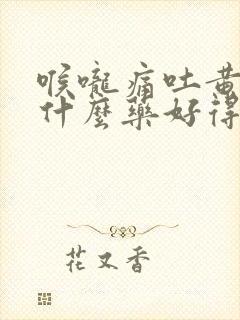 喉嚨痛吐黃
什麼藥好得
花又香